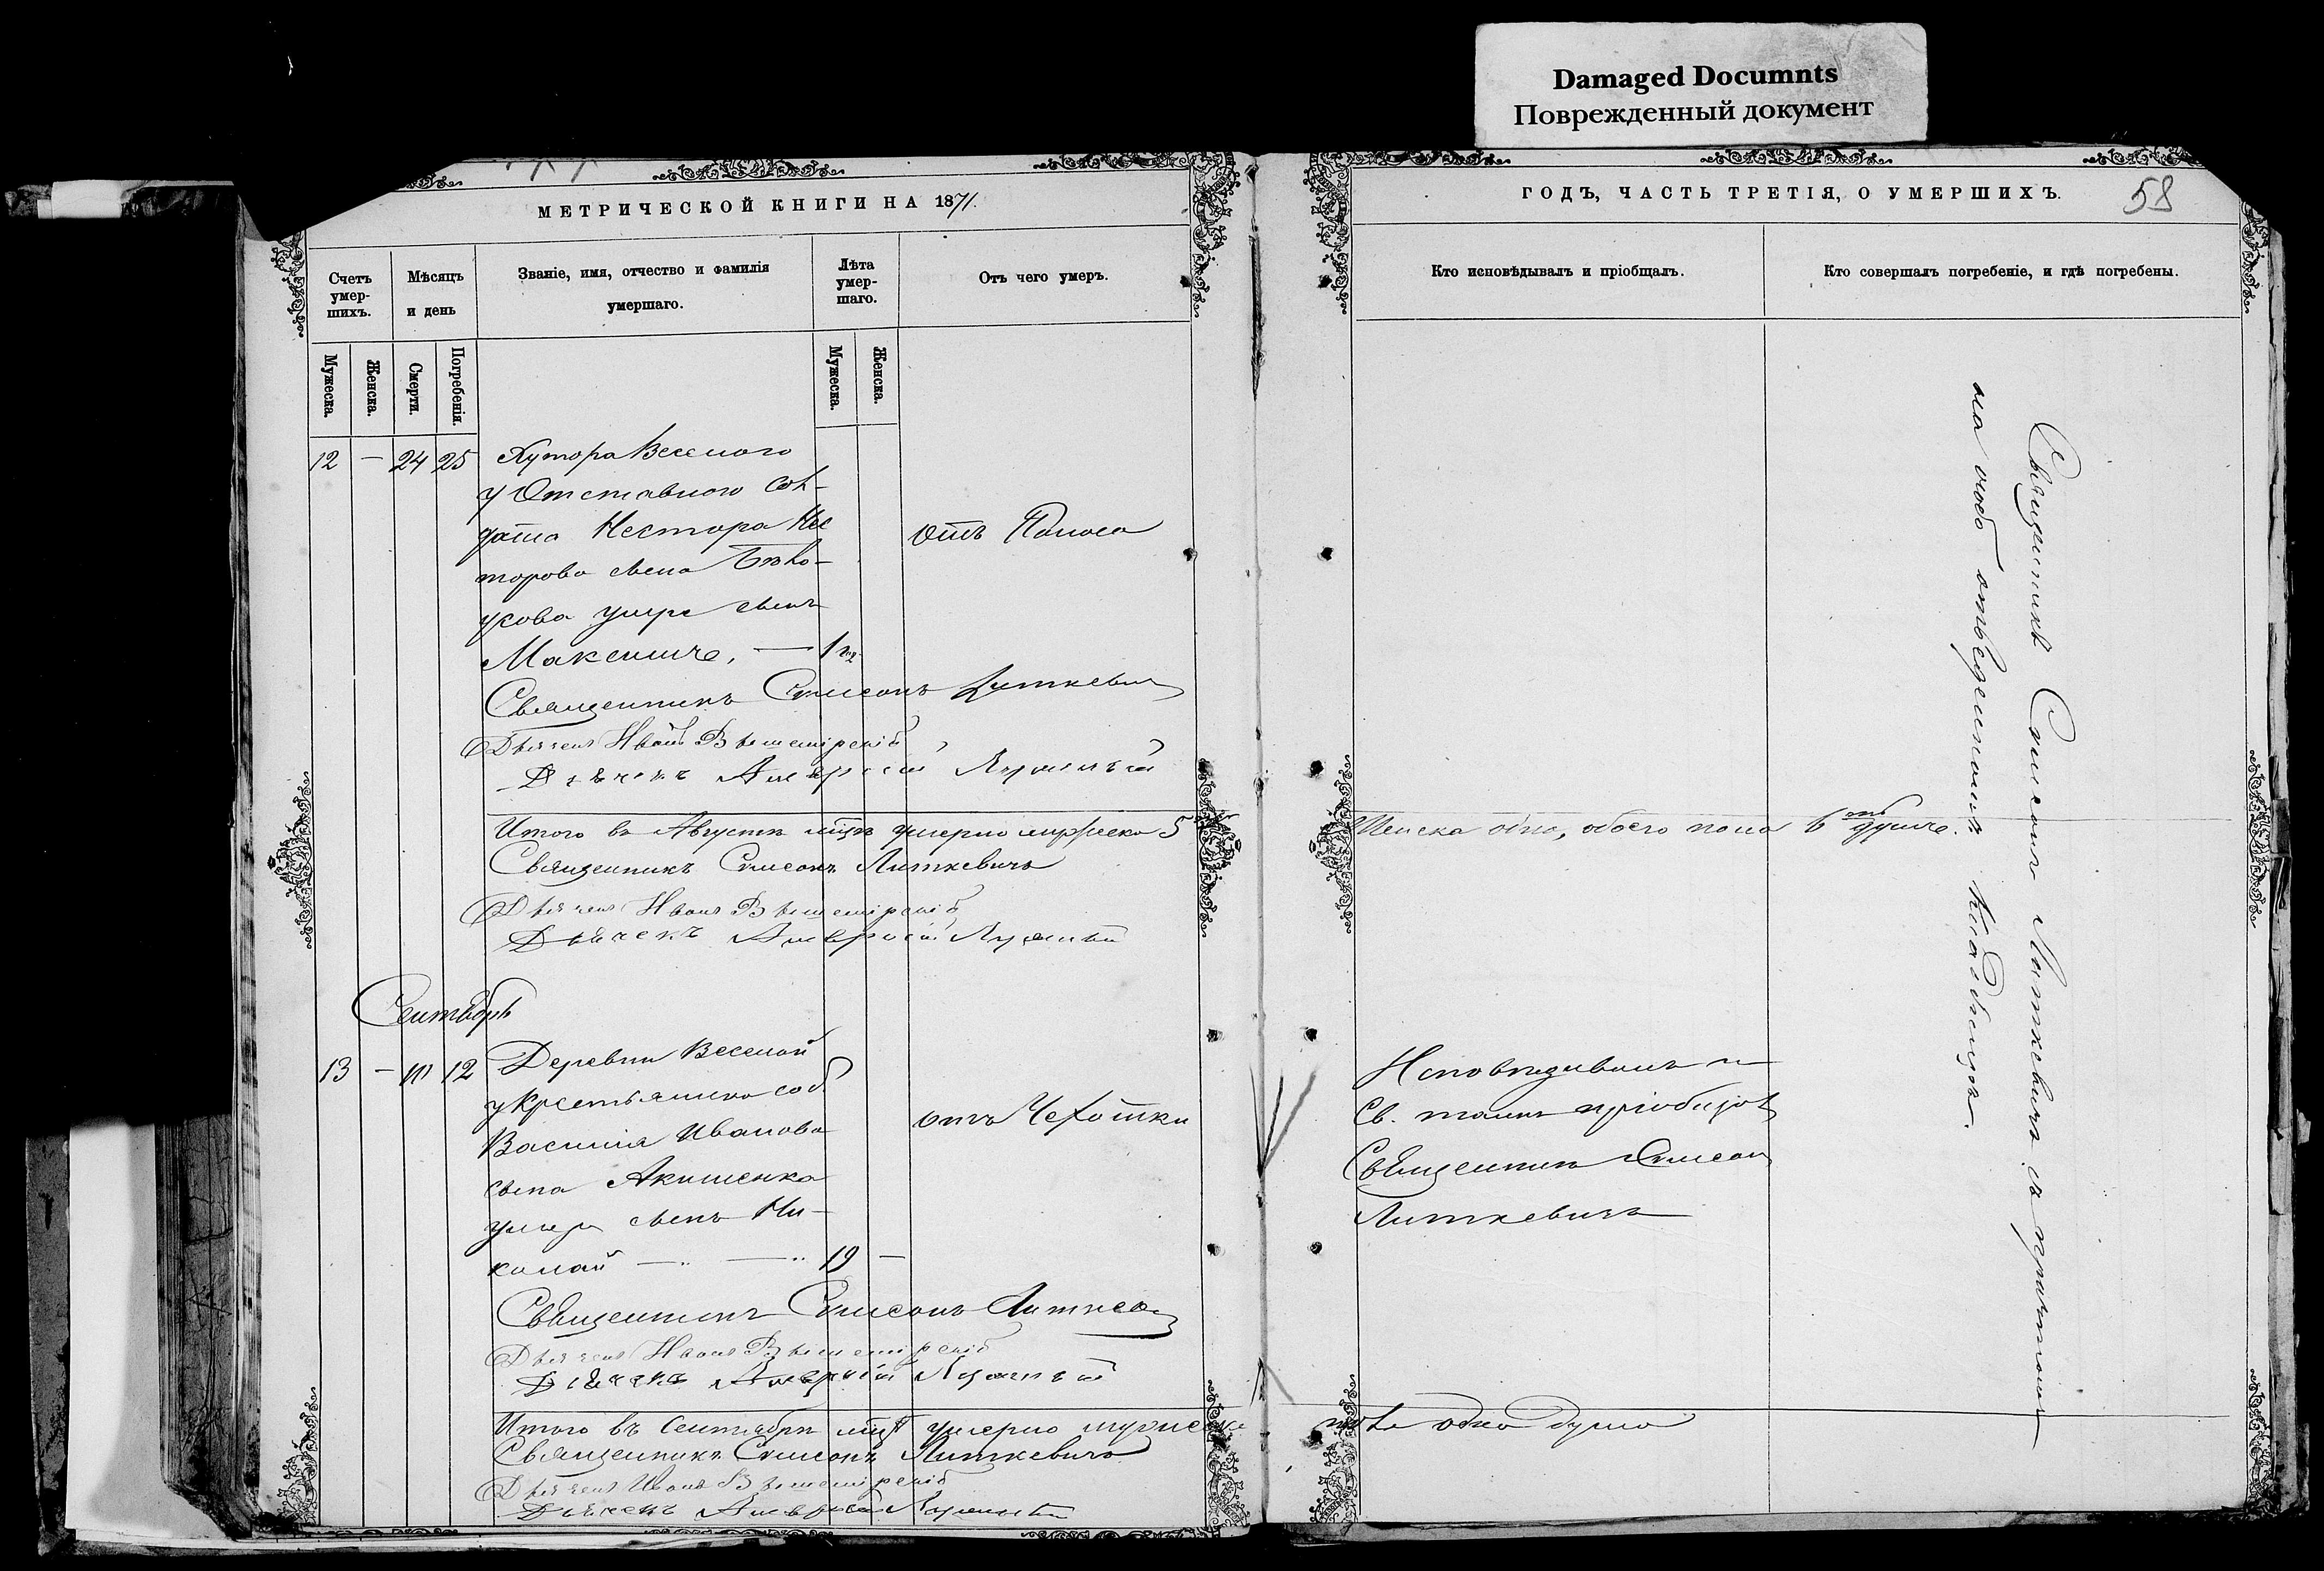 Damaged Documnts
Поврежденный документ
МЕТРИЧЕСКОЙ КНИГИ НА 1871.
Счетъ умер-шихъ.
Мѣсяцъ и день
Званіе, имя, отчество и фамилія умершаго.
Лѣта умер-шаго.
Отъ чего умеръ.
Мужеска.
Женска.
Смерти.
Погребенія.
Мужеска.
Женска.
12 — 24 25 Хутора Веселого
у Отставного сол-
дата Нестора Нес
торова сына
умре сынъ
Максимъ, — 1
отъ Поноса
Священникъ Симеонъ Литкевич
Дьячекъ Иванъ
Дьячекъ Амвросій
Итого въ Августѣ мцѣ умерло мужеска 5
Священникъ Симеонъ Литкевичъ
Дьячекъ Иванъ
Дьячекъ Амвросій
Сентябрь
13 — 10 12 Деревни Веселой
у Крестьянина соб.
Василія Иванова
сына Акименка
умеръ сынъ Ни-
колай — — 19 —
отъ Чехотки
Священникъ Симеонъ Литкев
Дьячекъ Иванъ
Дьячекъ Амвросій
Итого въ Сентябрѣ мцѣ умерло мужеска
Священникъ Симеонъ Литкевичъ
Дьячекъ Иванъ
Дьячекъ Амвросій
ГОДЪ, ЧАСТЬ ТРЕТІЯ, О УМЕРШИХЪ.
58
Кто исповѣдывалъ и пріобщалъ.
Кто совершалъ погребеніе, и гдѣ погребены.
Священникъ Симеонъ Литкевичъ съ причтомъ
на особо отведенномъ кладбищѣ.
Женска одна, обоего пола 6ть душъ.
Исповѣдывалъ и
Св. таинъ пріобщалъ
Священникъ Симеон
Литкевичъ
пола одна душа